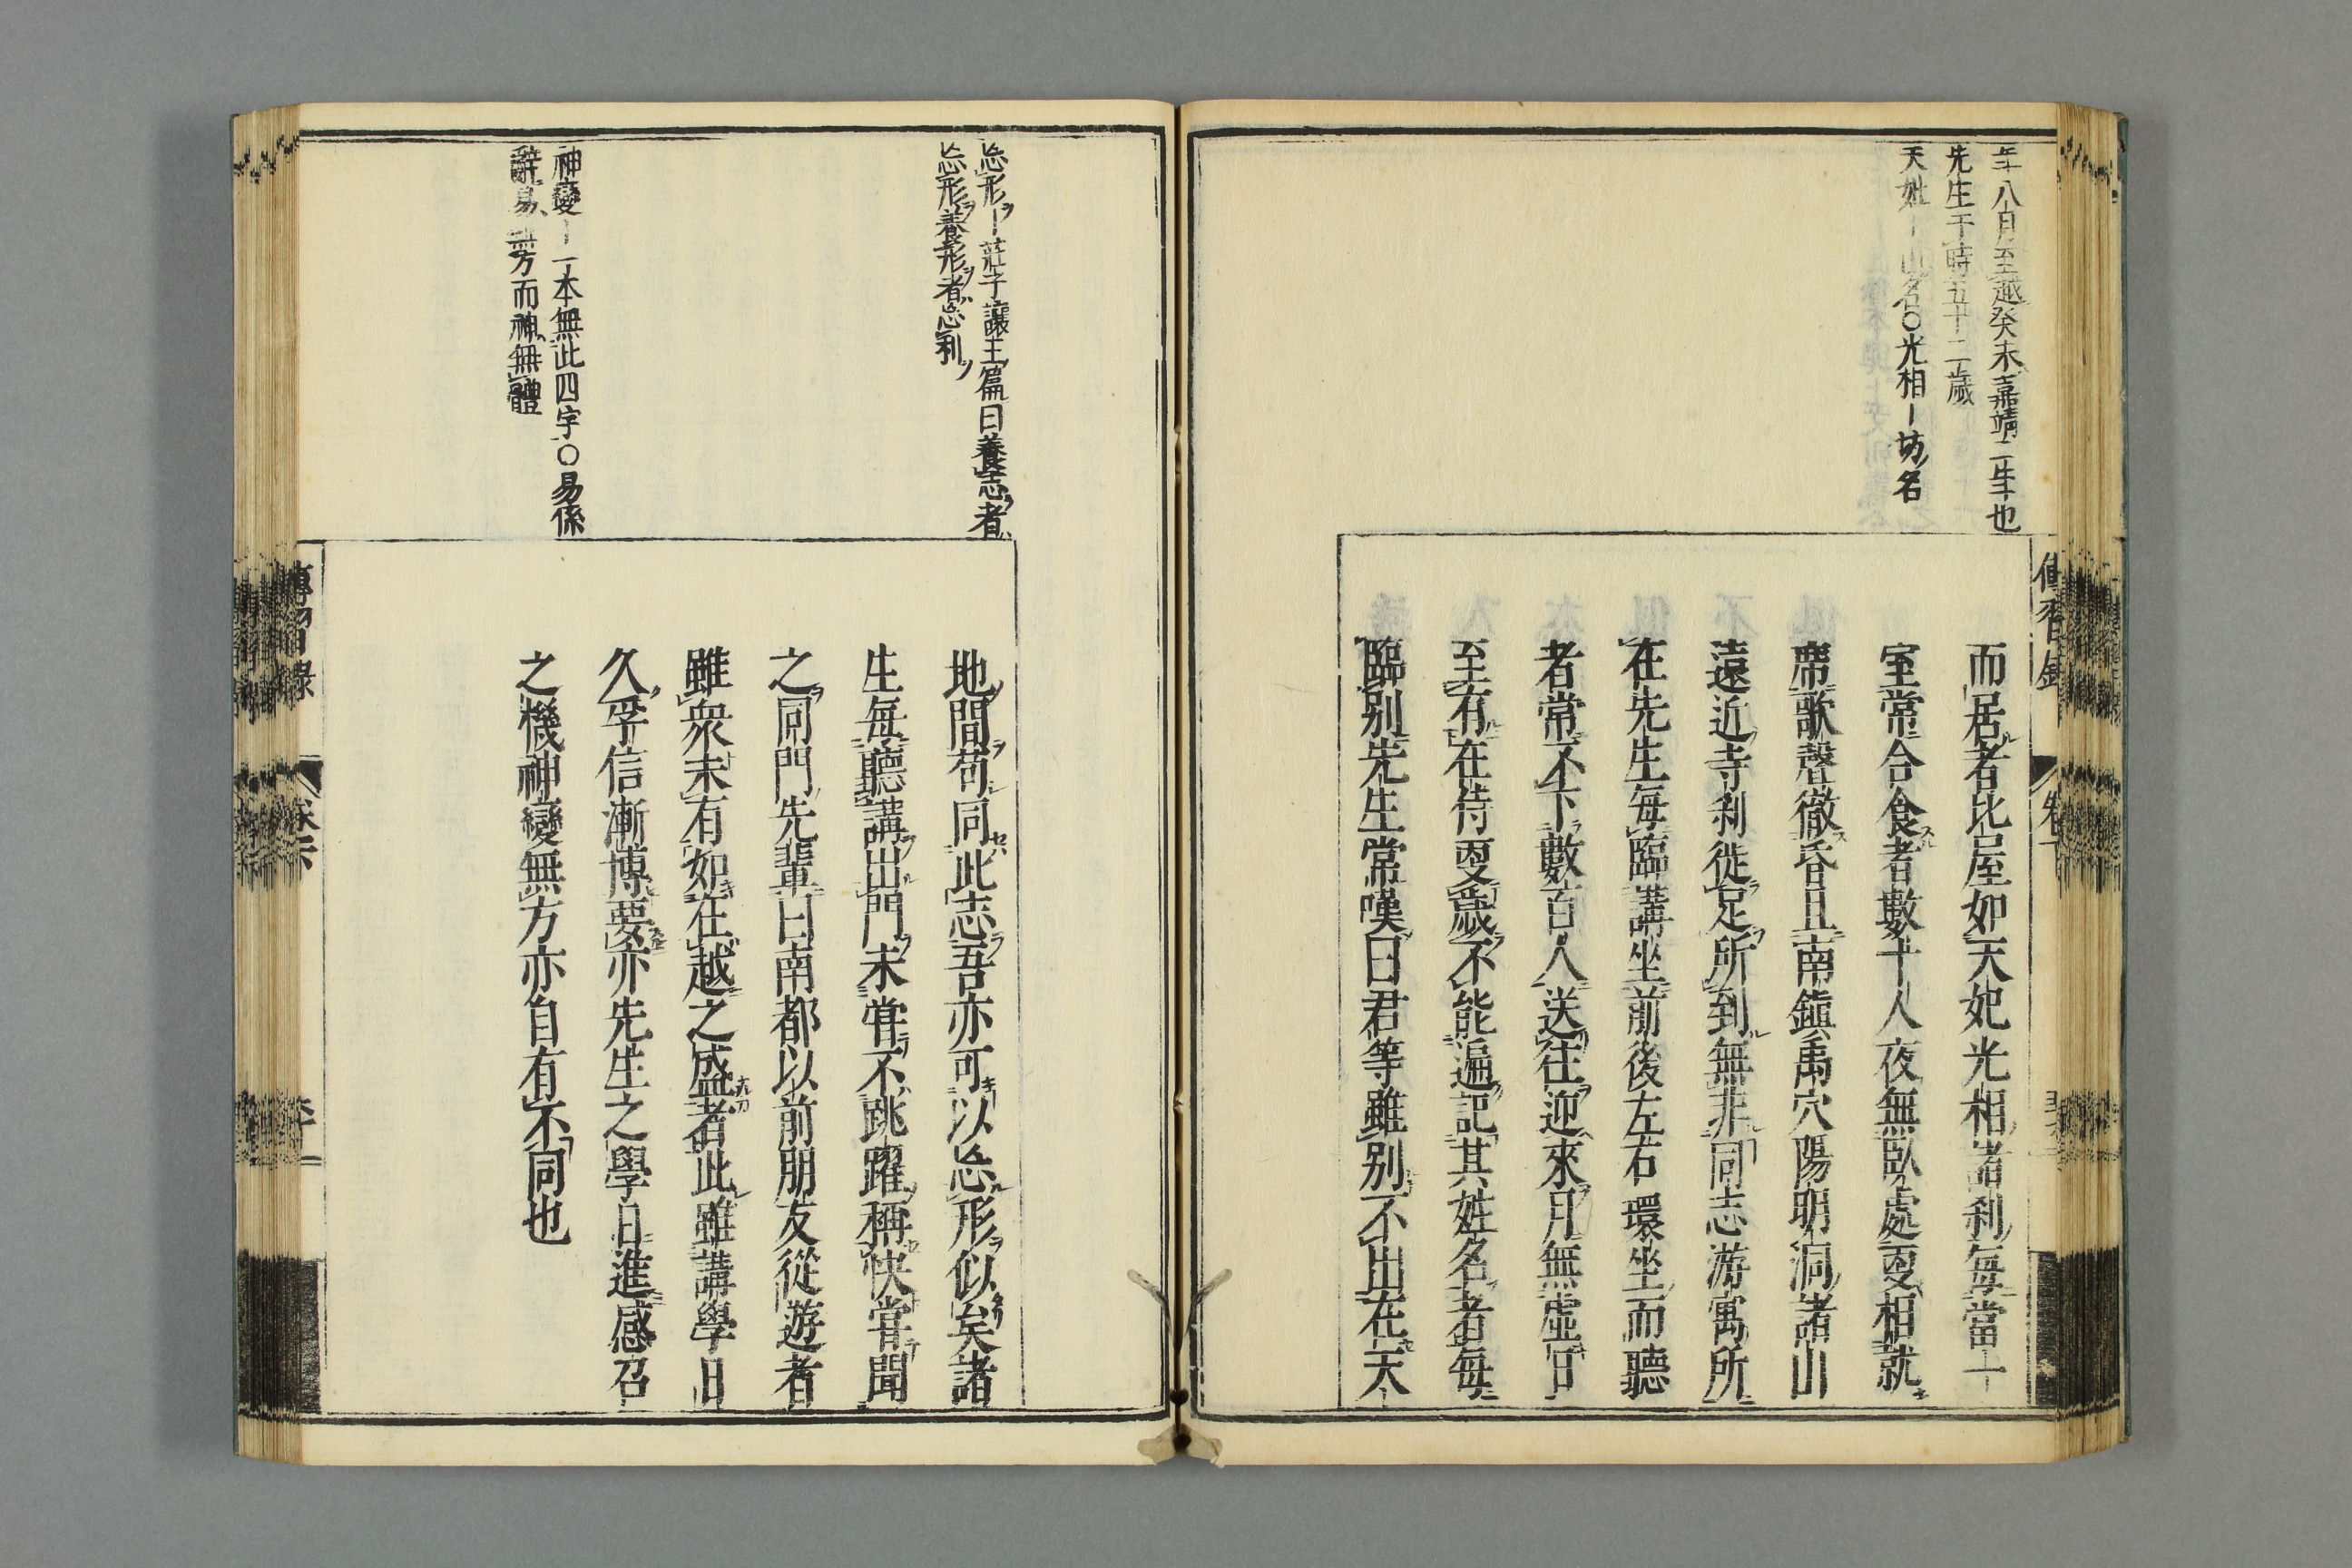 年八月至越癸未嘉靖二年也
先生于時五十二歲
天妃ー山名○光相ー坊名
而居者比屋如天妃光相諸刹每當一
室常合食者數十人夜無臥處更相就
席歌聲徹昏旦南鎮禹穴陽明洞諸山
遠近寺刹徙足所到無非同志游寓所
在先生每臨講坐前後左右環坐而聽
者常不下數百人送往迎來月無虛日
至有在侍更歲不能遍記其姓名者每
臨別先生常嘆曰君等雖別不出在天
忘形ー莊子讓王篇曰養志者
忘形養形者忘利
神變ー一本無此四字○易係
辭易無方而神無體
地間苟同此志吾亦可以忘形似矣諸
生每聽講出門未嘗不跳躍稱快嘗聞
之同門先輩曰南都以前朋友從遊者
雖衆未有如在越之盛者此雖講學日
久孚信漸博要亦先生之學日進感召
之機神變無方亦自有不同也
傳習錄
卷下